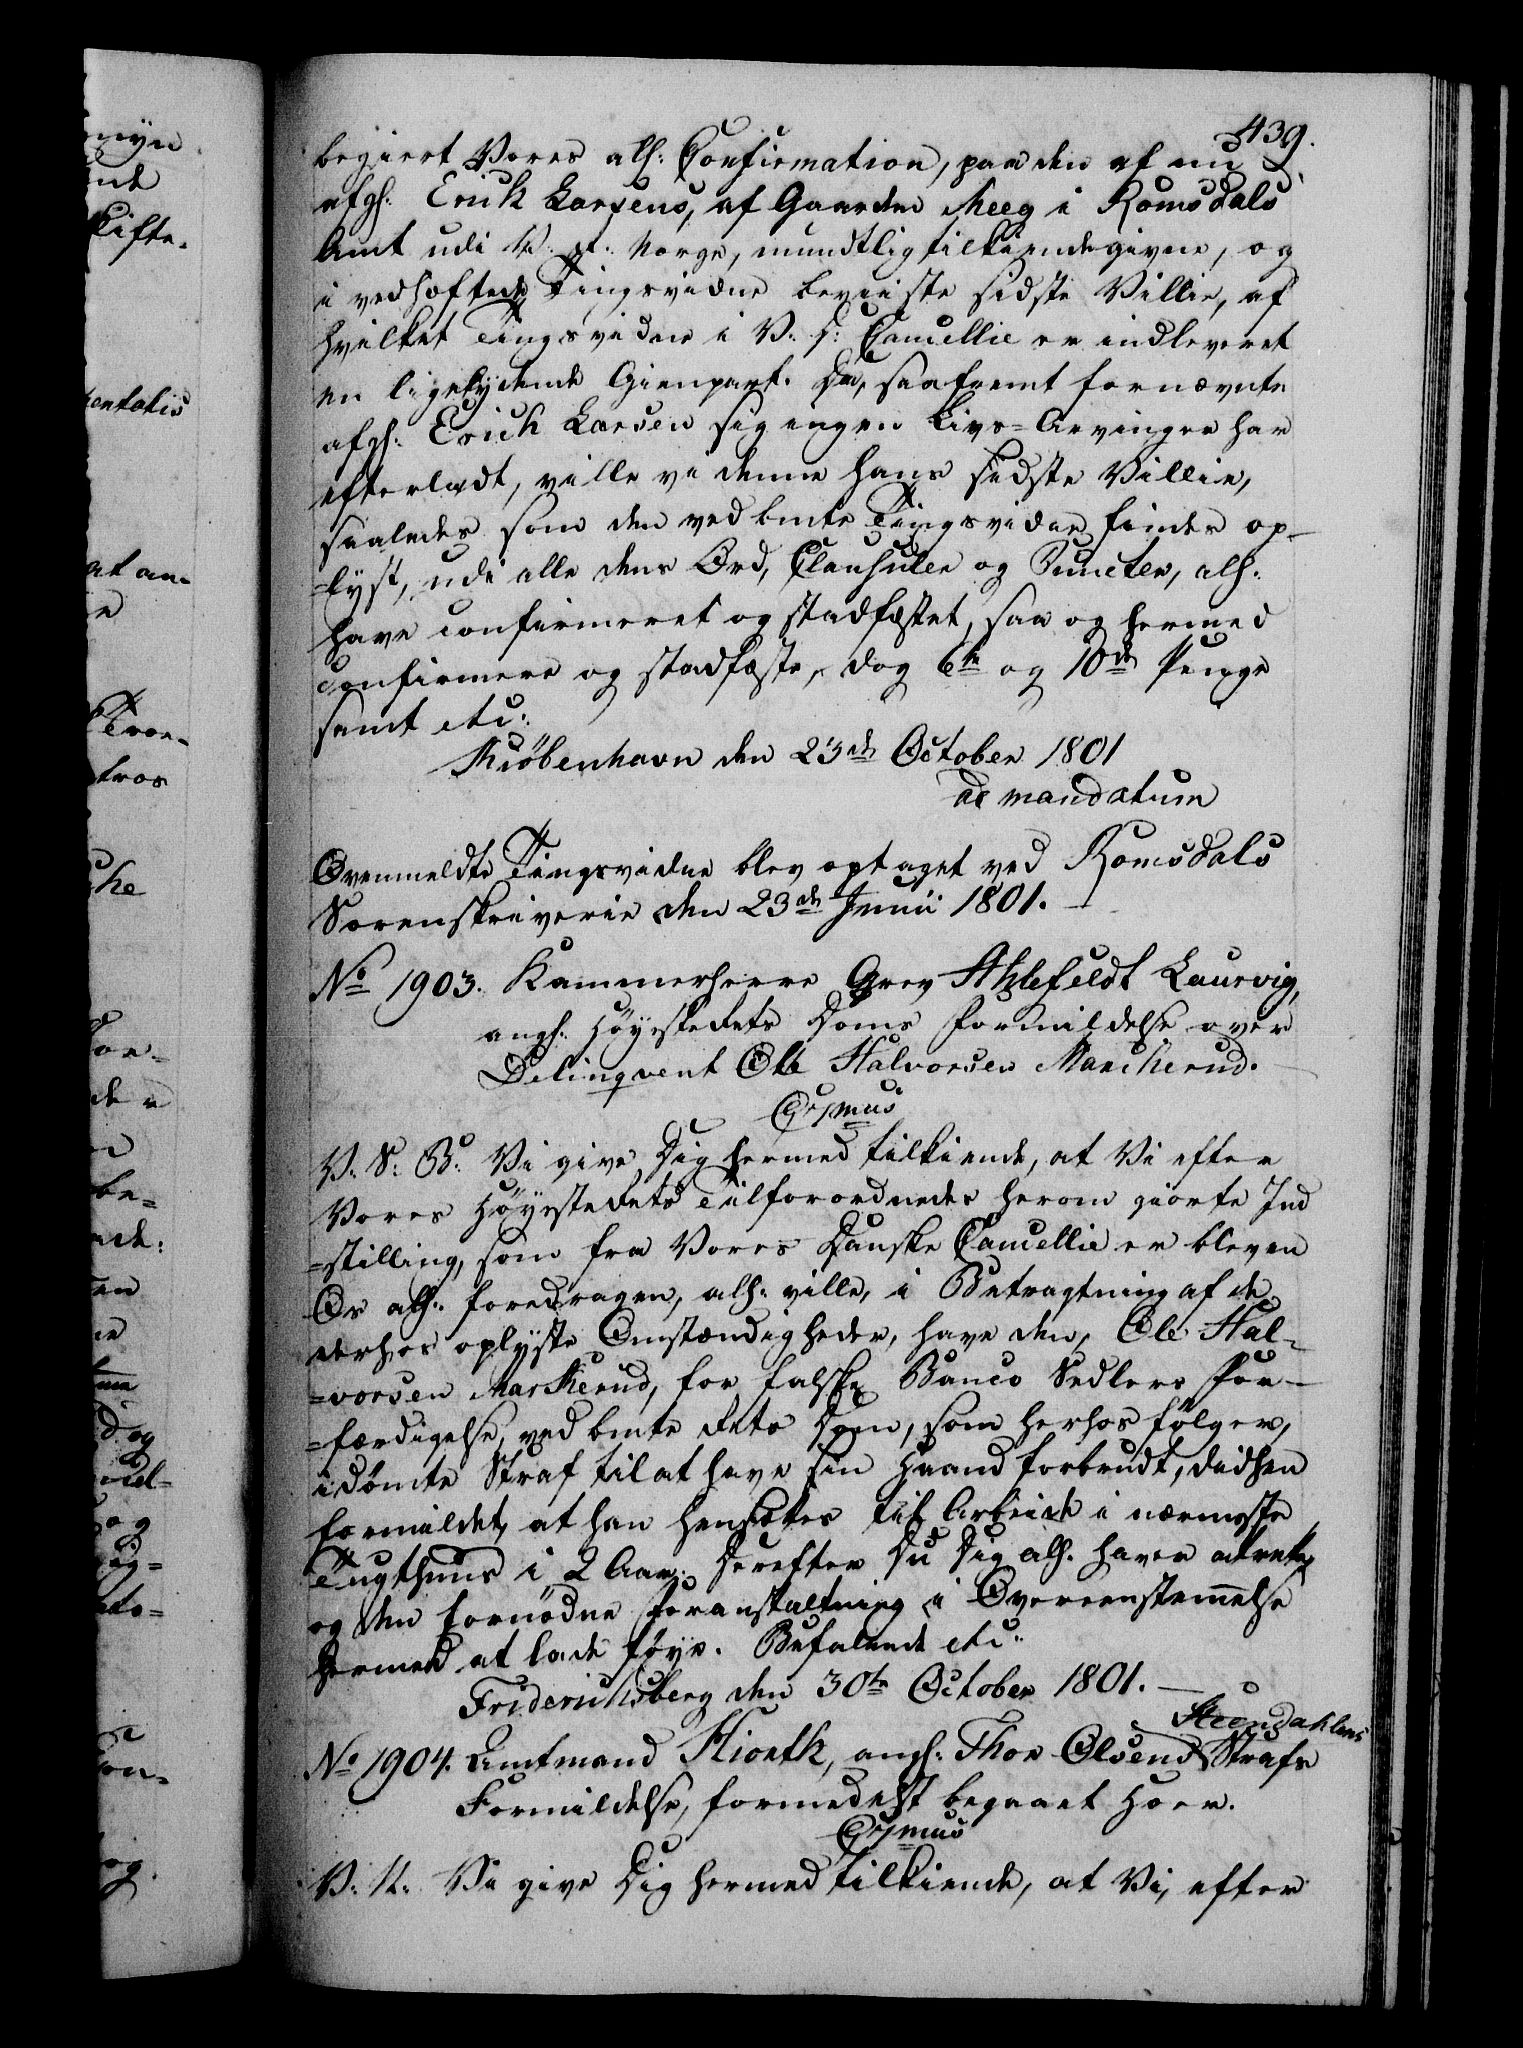 439.
begiert Vores alh: Confirmation, paa den af nu
afgh: Erick Larsens, af Gaarden Meeg i Romsdals
Amt udi V. R: Norge, mundtlig tilkiendegivne, og
i vedhæftede Tingsvidne beviiste sidste Villie, af
hvilket Tingsvidne i V: D: Cancellie er indleveret
en ligelydende Gienpart. Da, saafremt fornævnte
afgh: Erich Larsen sig ingen Livs-Arvinger har
efterladt, ville vi denne hans sidste Villie,
saaledes som den ved bmte Tingsvidne findes op-
=lyst, udi alle dens Ord, Clausuler og Puncter, alh:
have confirmeret og stadfæstet, saa og hermed
confirmere og stadfæste, dog 6te og 10de Penge
samt etc:
Kiøbenhavn den 23de October 1801
ad mandatum
Ovenmeldte Tingsvidne blev optaget ved Romsdals
Sorenskriverie den 23de Junii 1801.
No 1903. Kammerherre Grev Ahlefeldt Laurvig,
angh: Høyestedets Doms Formildelse over
Delinqvent Ole Halvorsen Marcherud.
C7mus
V: S: B: Vi give Dig hermed tilkiende, at Vi efter
Vores Høyestedets Tilforordnedes herom giorte Ind
=stilling, som fra Vores Danske Cancellie er bleven
Os alh: foredragen, alh: ville, i Betragtning af de
derhos oplyste Omstændigheder, have den, Ole Hal-
=vorsen Markerud, for falske Banco Sedlers For-
=færdigelse, ved bmte Rets Dom, som herhos følger,
idømte Straf til at have sin Haand forbrudt, didhen
formildet, at han hensættes til Arbeide i nærmeste
Tugthuus i 2 Aar. Derefter Du Dig alh. haver at rette,
og den fornødne Foranstaltning i Overeenstemmelse
hermed at lade føye. Befalende etc:
Friderichsberg den 30te October 1801.
Steendahlens
No 1904. Amtmand Hiorth, angh: Thor Olsens Strafs
Formildelse, formedelst begaaet Hoer.
C7mus
V: U: Vi give Dig hermed tilkiende, at Vi, efter